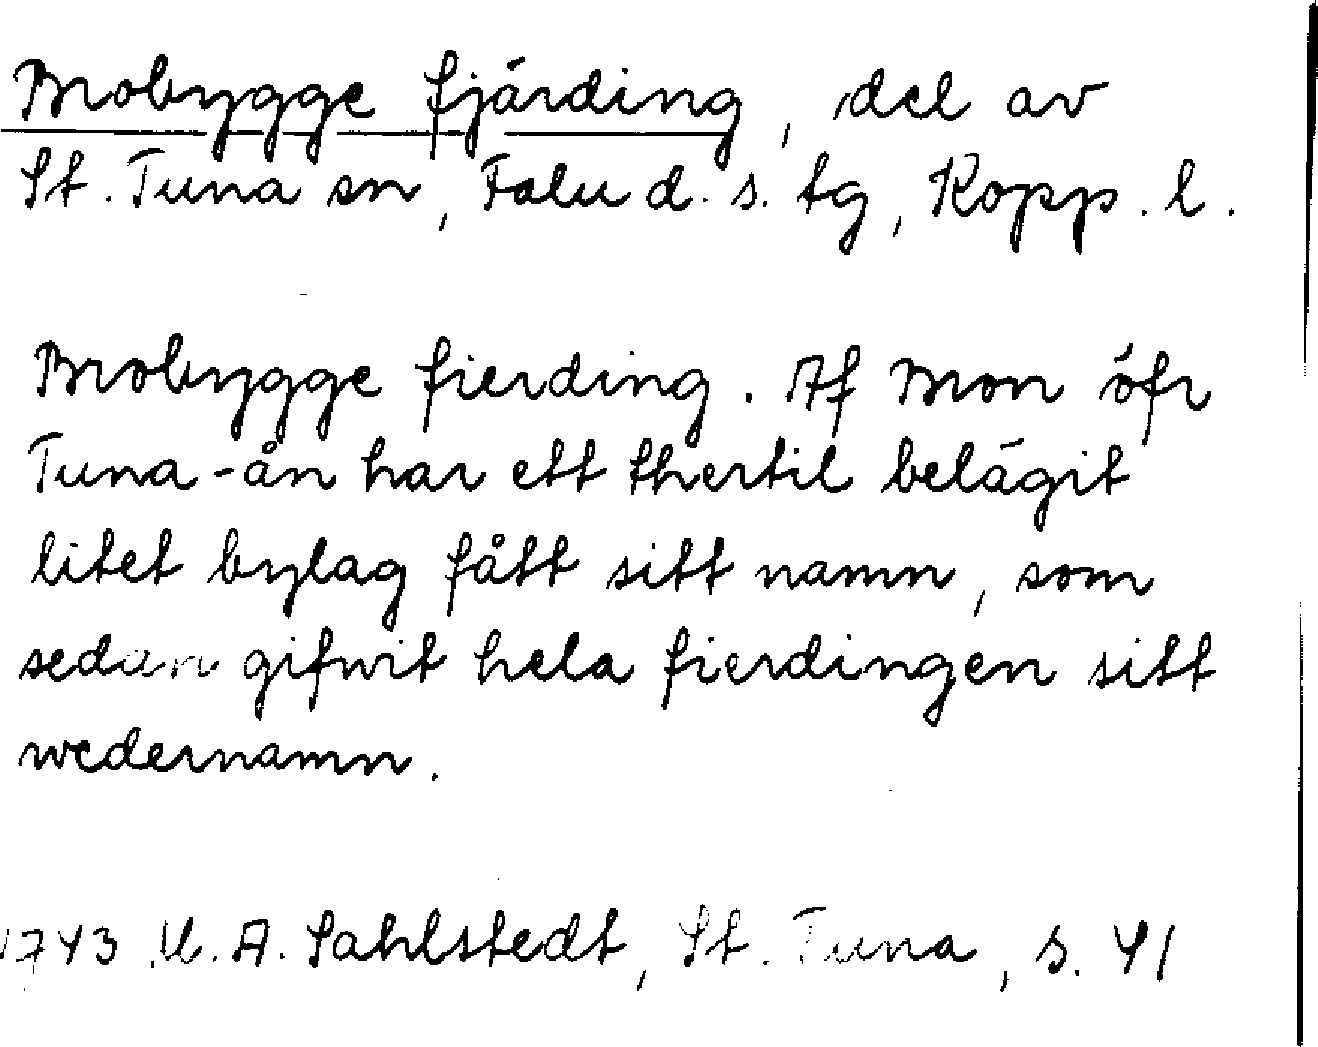 Brobygge fjärding, del av
St. Tuna sn, Falu d. s. tg, Kopp. l.
Brobygge fierding. Af Bron öfr
Tuna-ån har ett thertil belägit
litet bylag fått sitt namn, som
sedan gifwit hela fierdingen sitt
wedernamn.
1743 U. A. Sahlstedt, St. Tuna, s. 41